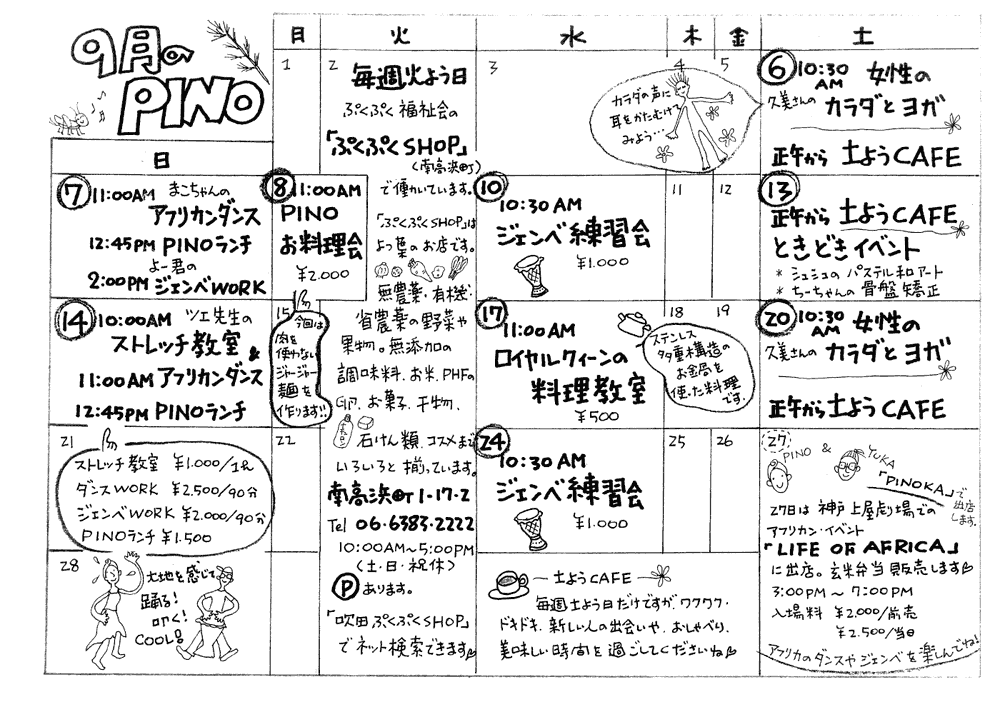 9月の
PINO
日
月
火
水
木
金
土
日
1
2
毎週火よう日
ぷくぷく福祉会の
「ぷくぷくSHOP」
(南高浜町)
で働かいています。
「ぷくぷくSHOP」は
よつ葉のお店です。
無農薬・有機・
省農薬の野菜や
果物。無添加の
調味料、お米、PHFの
Gパン、お菓子、干物、
石けん類、コスメまで
いろいろと揃っています。
南高浜町1-17-2
Tel 06・6383・2222
10:00AM〜5:00PM
(土・日・祝休)
Ⓟあります。
「吹田ぷくぷくSHOP」
でネット検索できます
3
4
5
カラダの声に
耳をかたむけて
みよう…
6
10:30
AM
女性の
久美さんの
カラダとヨガ
正午から 土ようCAFE
7
11:00AM まこちゃんの
アフリカンダンス
12:45PM PINOランチ
よー君の
2:00PM ジェンベWORK
8
11:00AM
PINO
お料理会
¥2.000
10
10:30 AM
ジェンベ練習会
¥1.000
11
12
13
正午から 土ようCAFE
ときどきイベント
* シュシュの パステル和アート
* ちーちゃんの 骨盤矯正
14
10:00AM ツエ先生の
ストレッチ教室 &
11:00AM アフリカンダンス
12:45PM PINOランチ
15
今回は
肉を
使わない
ジャージャー
麺を
作ります!!
17
11:00AM
ロイヤルクィーンの
料理教室
¥500
18
19
ステンレス
多重構造の
お金局を
使った料理
です。
20
10:30
AM
女性の
久美さんの
カラダとヨガ
正午から土ようCAFE
21
ストレッチ教室 ¥1.000/1R
ダンスWORK ¥2.500/90分
ジェンベWORK ¥2.000/90分
PINOランチ ¥1.500
22
24
10:30 AM
ジェンベ練習会
¥1.000
25
26
27
PINO & YUKA
「PINOKA」で
出店
します。
27日は 神戸 上屋劇場での
アフリカン・イベント
「LIFE OF AFRICA」
に出店。玄米弁当販売します
3:00PM 〜 7:00PM
入場料 ¥2.000/前売
¥2.500/当日
アフリカのダンスやジェンベを楽しんでね!
28
大地を感じて
踊る!
叩く!
COOL!
土ようCAFE
毎週土よう日だけですが、ワクワク・
ドキドキ、新しい人の出会いや、おしゃべり、
美味しい時間を過ごしてくださいね